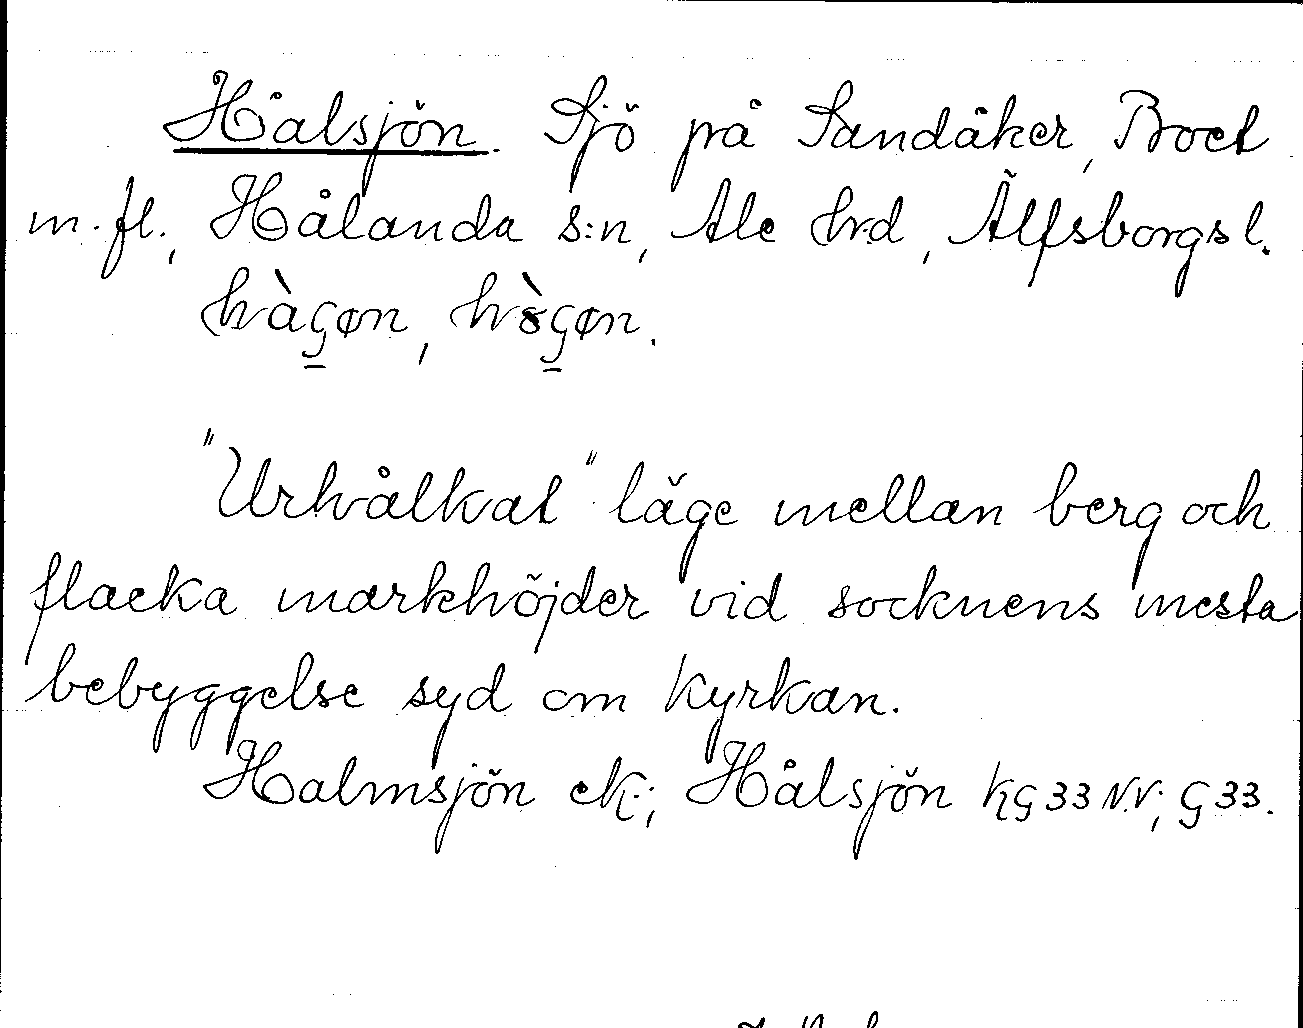 Hålsjön. Sjö på Sandåker, Broet
m.fl., Hålanda s:n, Ale hrd, Älfsborgs l.
"Urhålkat" läge mellan berg och
flacka markhöjder vid socknens mesta
bebyggelse syd om kyrkan.
Halmsjön ek.; Hålsjön KG33NV; G33.